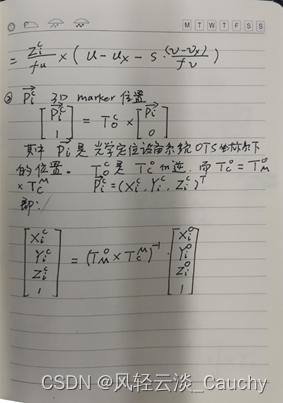 M T W T F S S
= Z_i^c / f_u × ( u - u_x - s · (v - v_x) / f_v )
② P_i^c 3D marker 位置
[ P_i^c 1 ] = T_o^c × [ P_i^c 0 ]
其中 P_i 是光学定位设备系统 OTS 坐标系下
的位置. T_o^c 是 T_c^o 的逆, 而 T_c^o = T_M^o
× T_c^M P_i^c = (X_i^c, Y_i^c, Z_i^c)^T
即:
[ X_i^c Y_i^c Z_i^c 1 ] = (T_M^o × T_c^M)^-1 · [ X_i^o Y_i^o Z_i^o 1 ]
CSDN @风轻云淡_Cauchy